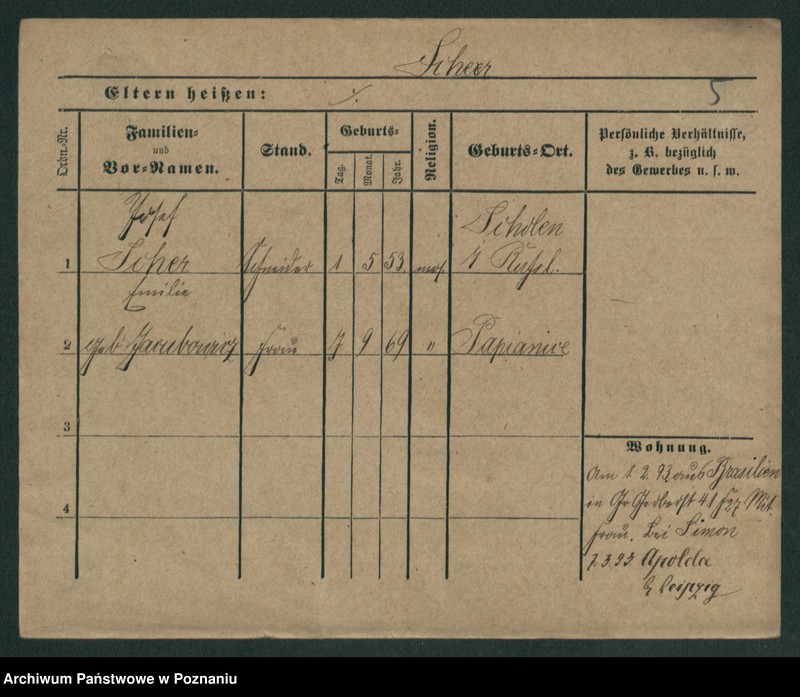 Scheer
Eltern heißen: ./.
5
Ordn.-Nr.
Familien-
und
Vor-Namen.
Stand.
Geburts-
Tag.
Monat.
Jahr.
Religion.
Geburts-Ort.
Persönliche Verhältnisse,
z. B. bezüglich
des Gewerbes u. s. w.
Josef
Scholen
1 Scher Schneider 1 5 53. mos. i/ Rußl.
Emilie
2 geb Jacubowicz Frau 7 9 69 " Papianice
3
4
Wohnung.
Am 1. 2. 93 aus Brasilien
in Gr Gerberst 41 Mit
Frau. bei Simon
7. 3. 93. Apolda
b/ Leipzig
Archiwum Państwowe w Poznaniu